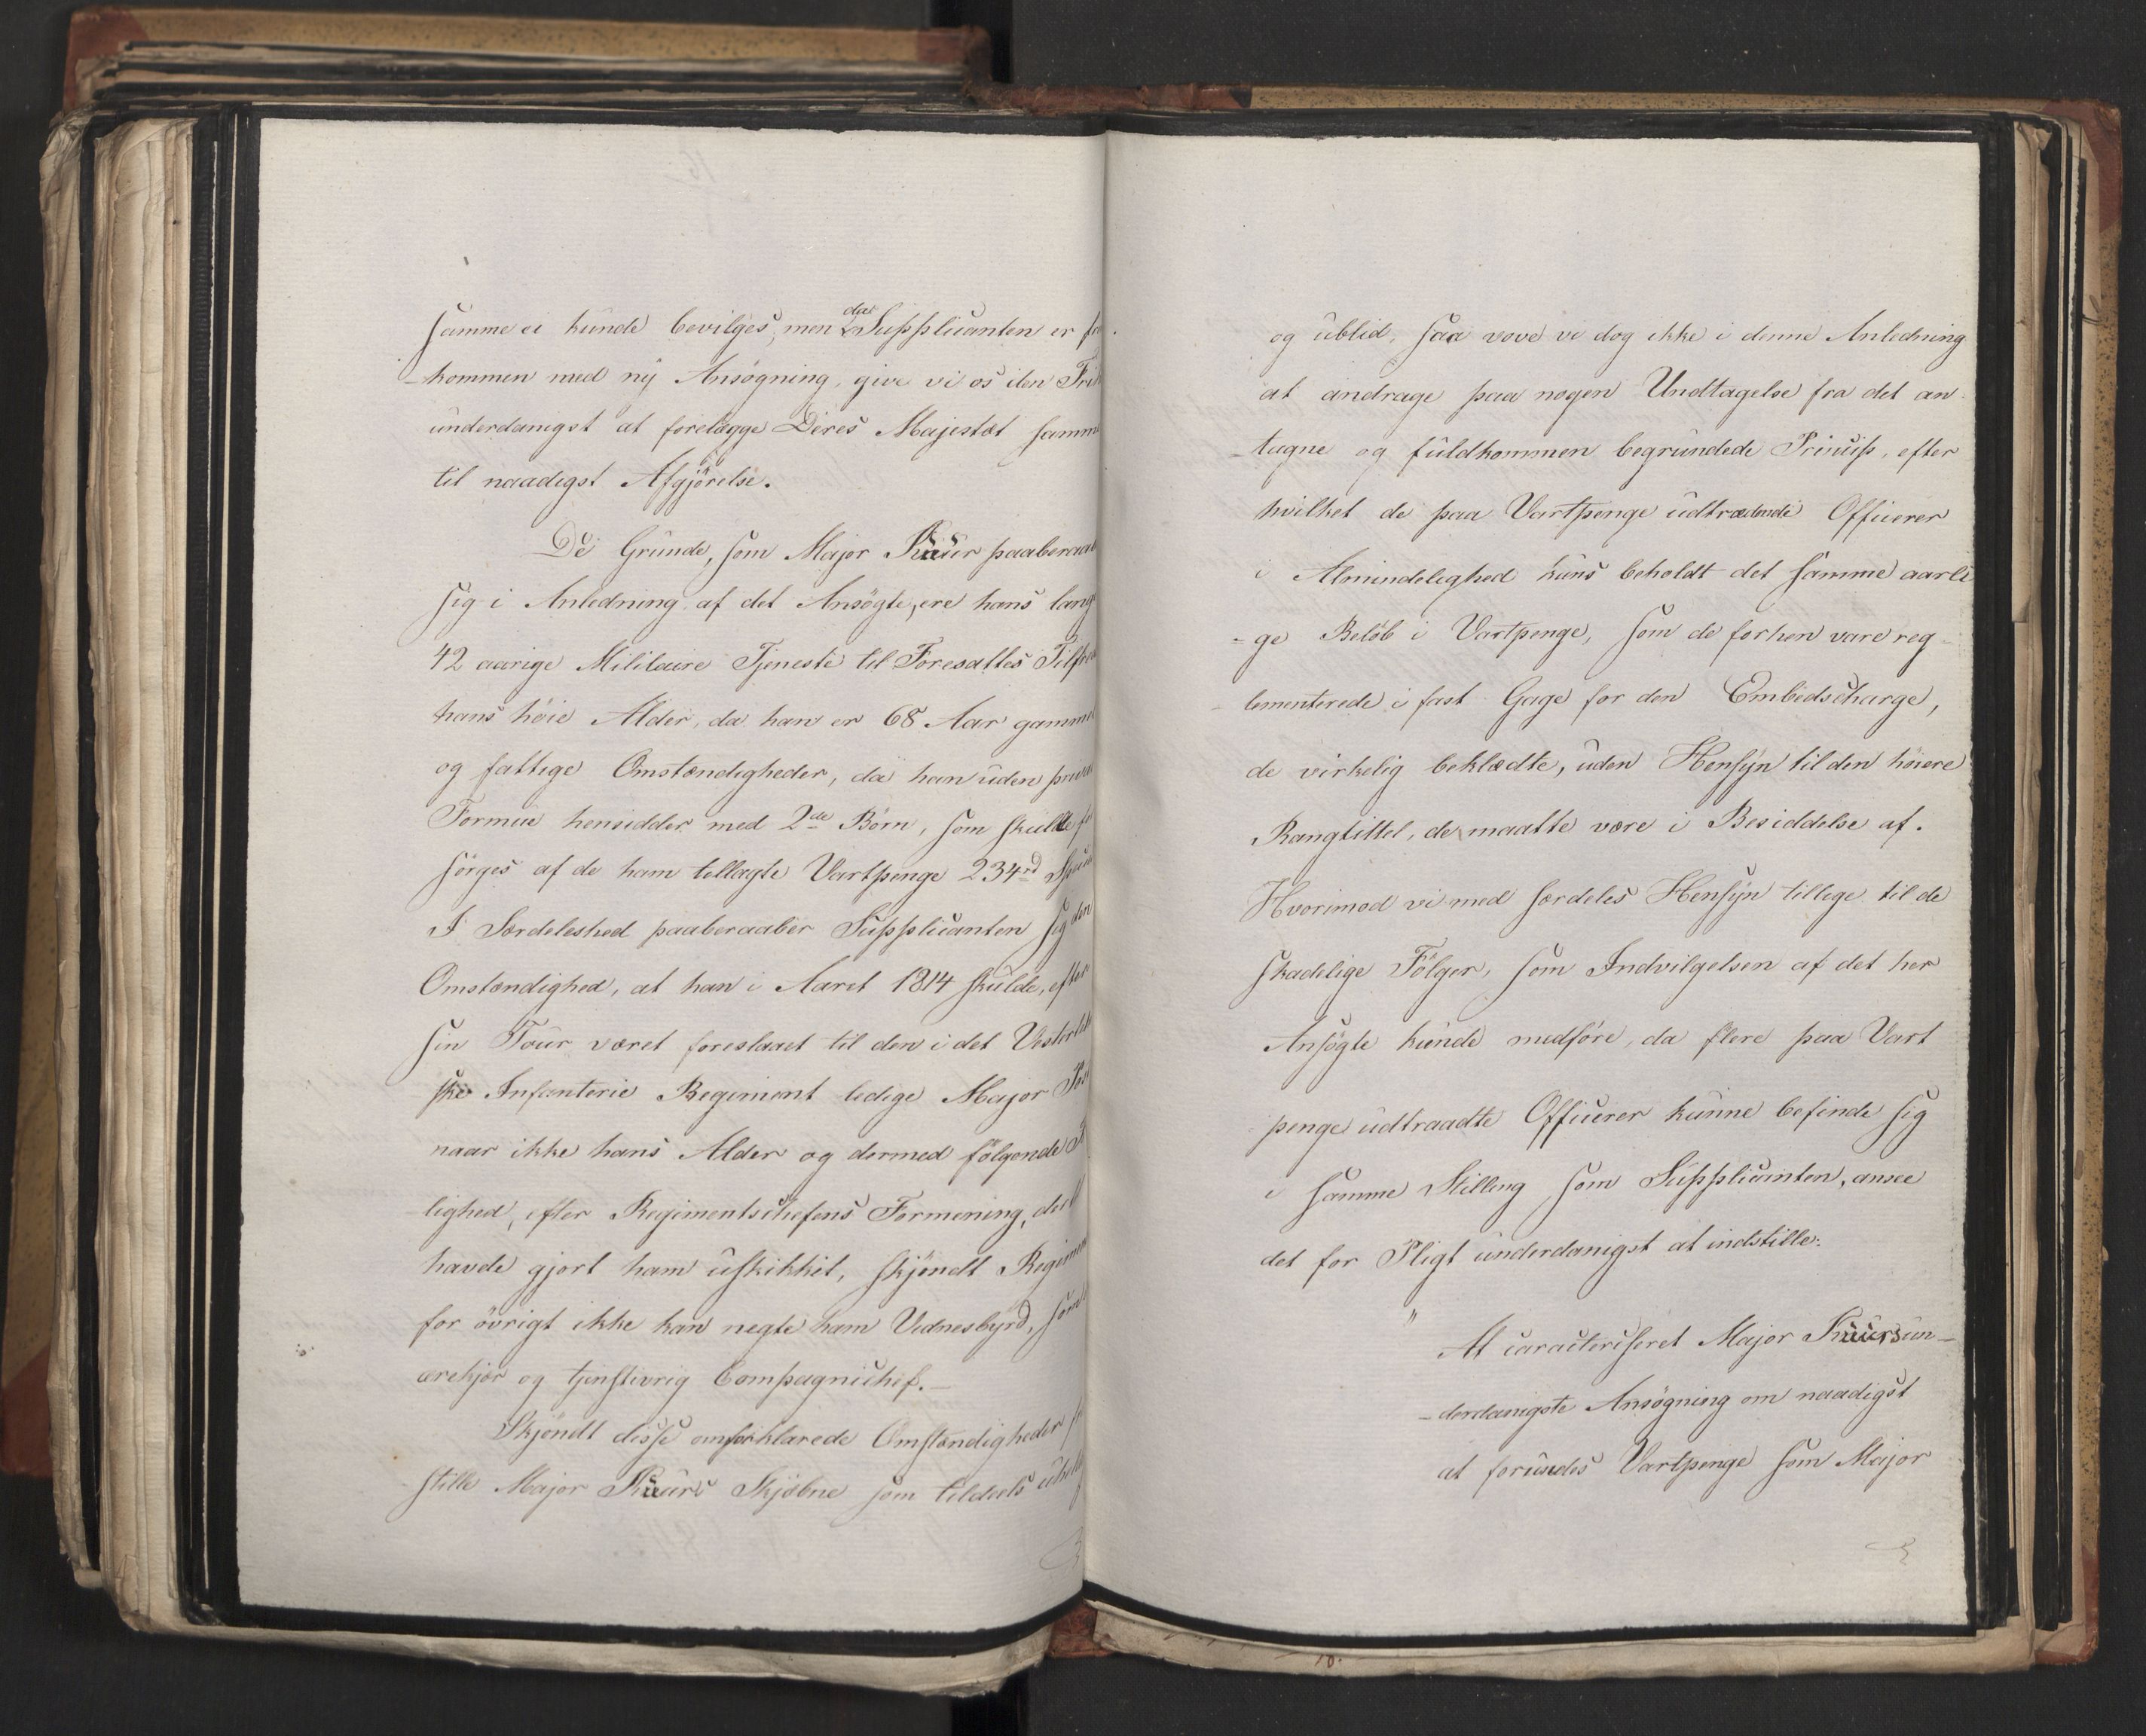 samme ei kunde bevilges, men da Supplicanten er
-kommen med ny Ansögning, give vi os den
underdanigst at forelægge Deres Majestæt samm
til naadigst Afgjörelse.
De Grunde, som Major paaberaab
sig i Anledning af det Ansögte, ere hans lang
42 aarige Militaire Tjeneste til Foresattes Tilfred
hans höie Alder, da han er 68 Aar gammel
og fattige Omstændigheder, da han uden privat
Formue hensidder med 2de Börn, som skulle
sörges af de ham tillagte Vartpenge 234rd
I Særdeleshed paaberaaber Supplicanten sig den
Omstændighed, at han i Aaret 1814 skulde, efter
sin Tour været foreslaaet til den i det
ske Infanterie Regiment ledige Major
naar ikke hans Alder og dermed fölgende
lighed, efter Regimentschefens Formening, de
havde gjort ham uskikket, skjöndt Regimen
for övrigt ikke kan negte ham Vidnesbyrd, som
ærekjær og tjenstivrig Compagnichef.-
Skjöndt disse omforklarede Omstændigheder
stille Major Skjæbne som tildeels
og ublid, saa vove vi dog ikke i denne Anledning
at andrage paa nogen Undtagelse fra det an
-tagne og fuldkommen begrundede Princip, efter
hvilket de paa Vartpenge udtrædende Officerer
i Almindelighed kuns beholdt det samme aarli
-ge Belöb i Vartpenge, som de forhen vare reg-
-lementerede i fast Gage for den Embedscharge,
de virkelig beklædte, uden Hensyn til den höiere
Rangtittel, de maatte være i Besiddelse af.
Hvorimod vi med særdeles Hensyn tillige til de
skadelige Fölger, som Indvilgelsen af det her
Ansögte kunde medföre, da flere paa Vart
-penge udtraadte Officerer kunne befinde sig
i samme Stilling som Supplicanten, ansee
det for Pligt underdanigst at indstille:
" At caracteriseret Major un-
-derdanigste Ansögning om naadigst
at forundes Vartpenge som Major